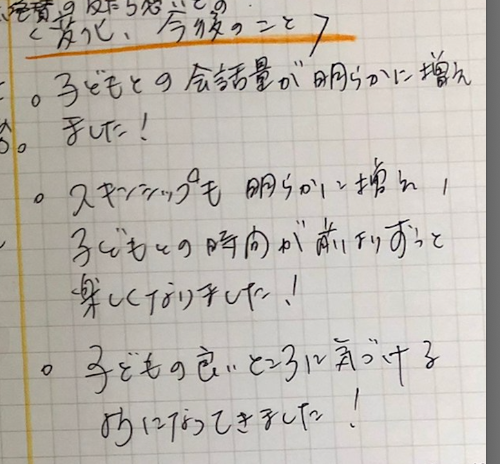 <変化、今後のこと>
。子どもとの会話量が明らかに増え
ました!
。スキンシップも明らかに増え,
子どもとの時間が前よりずっと
楽しくなりました!
。子どもの良いところに気づける
ようになってきました!